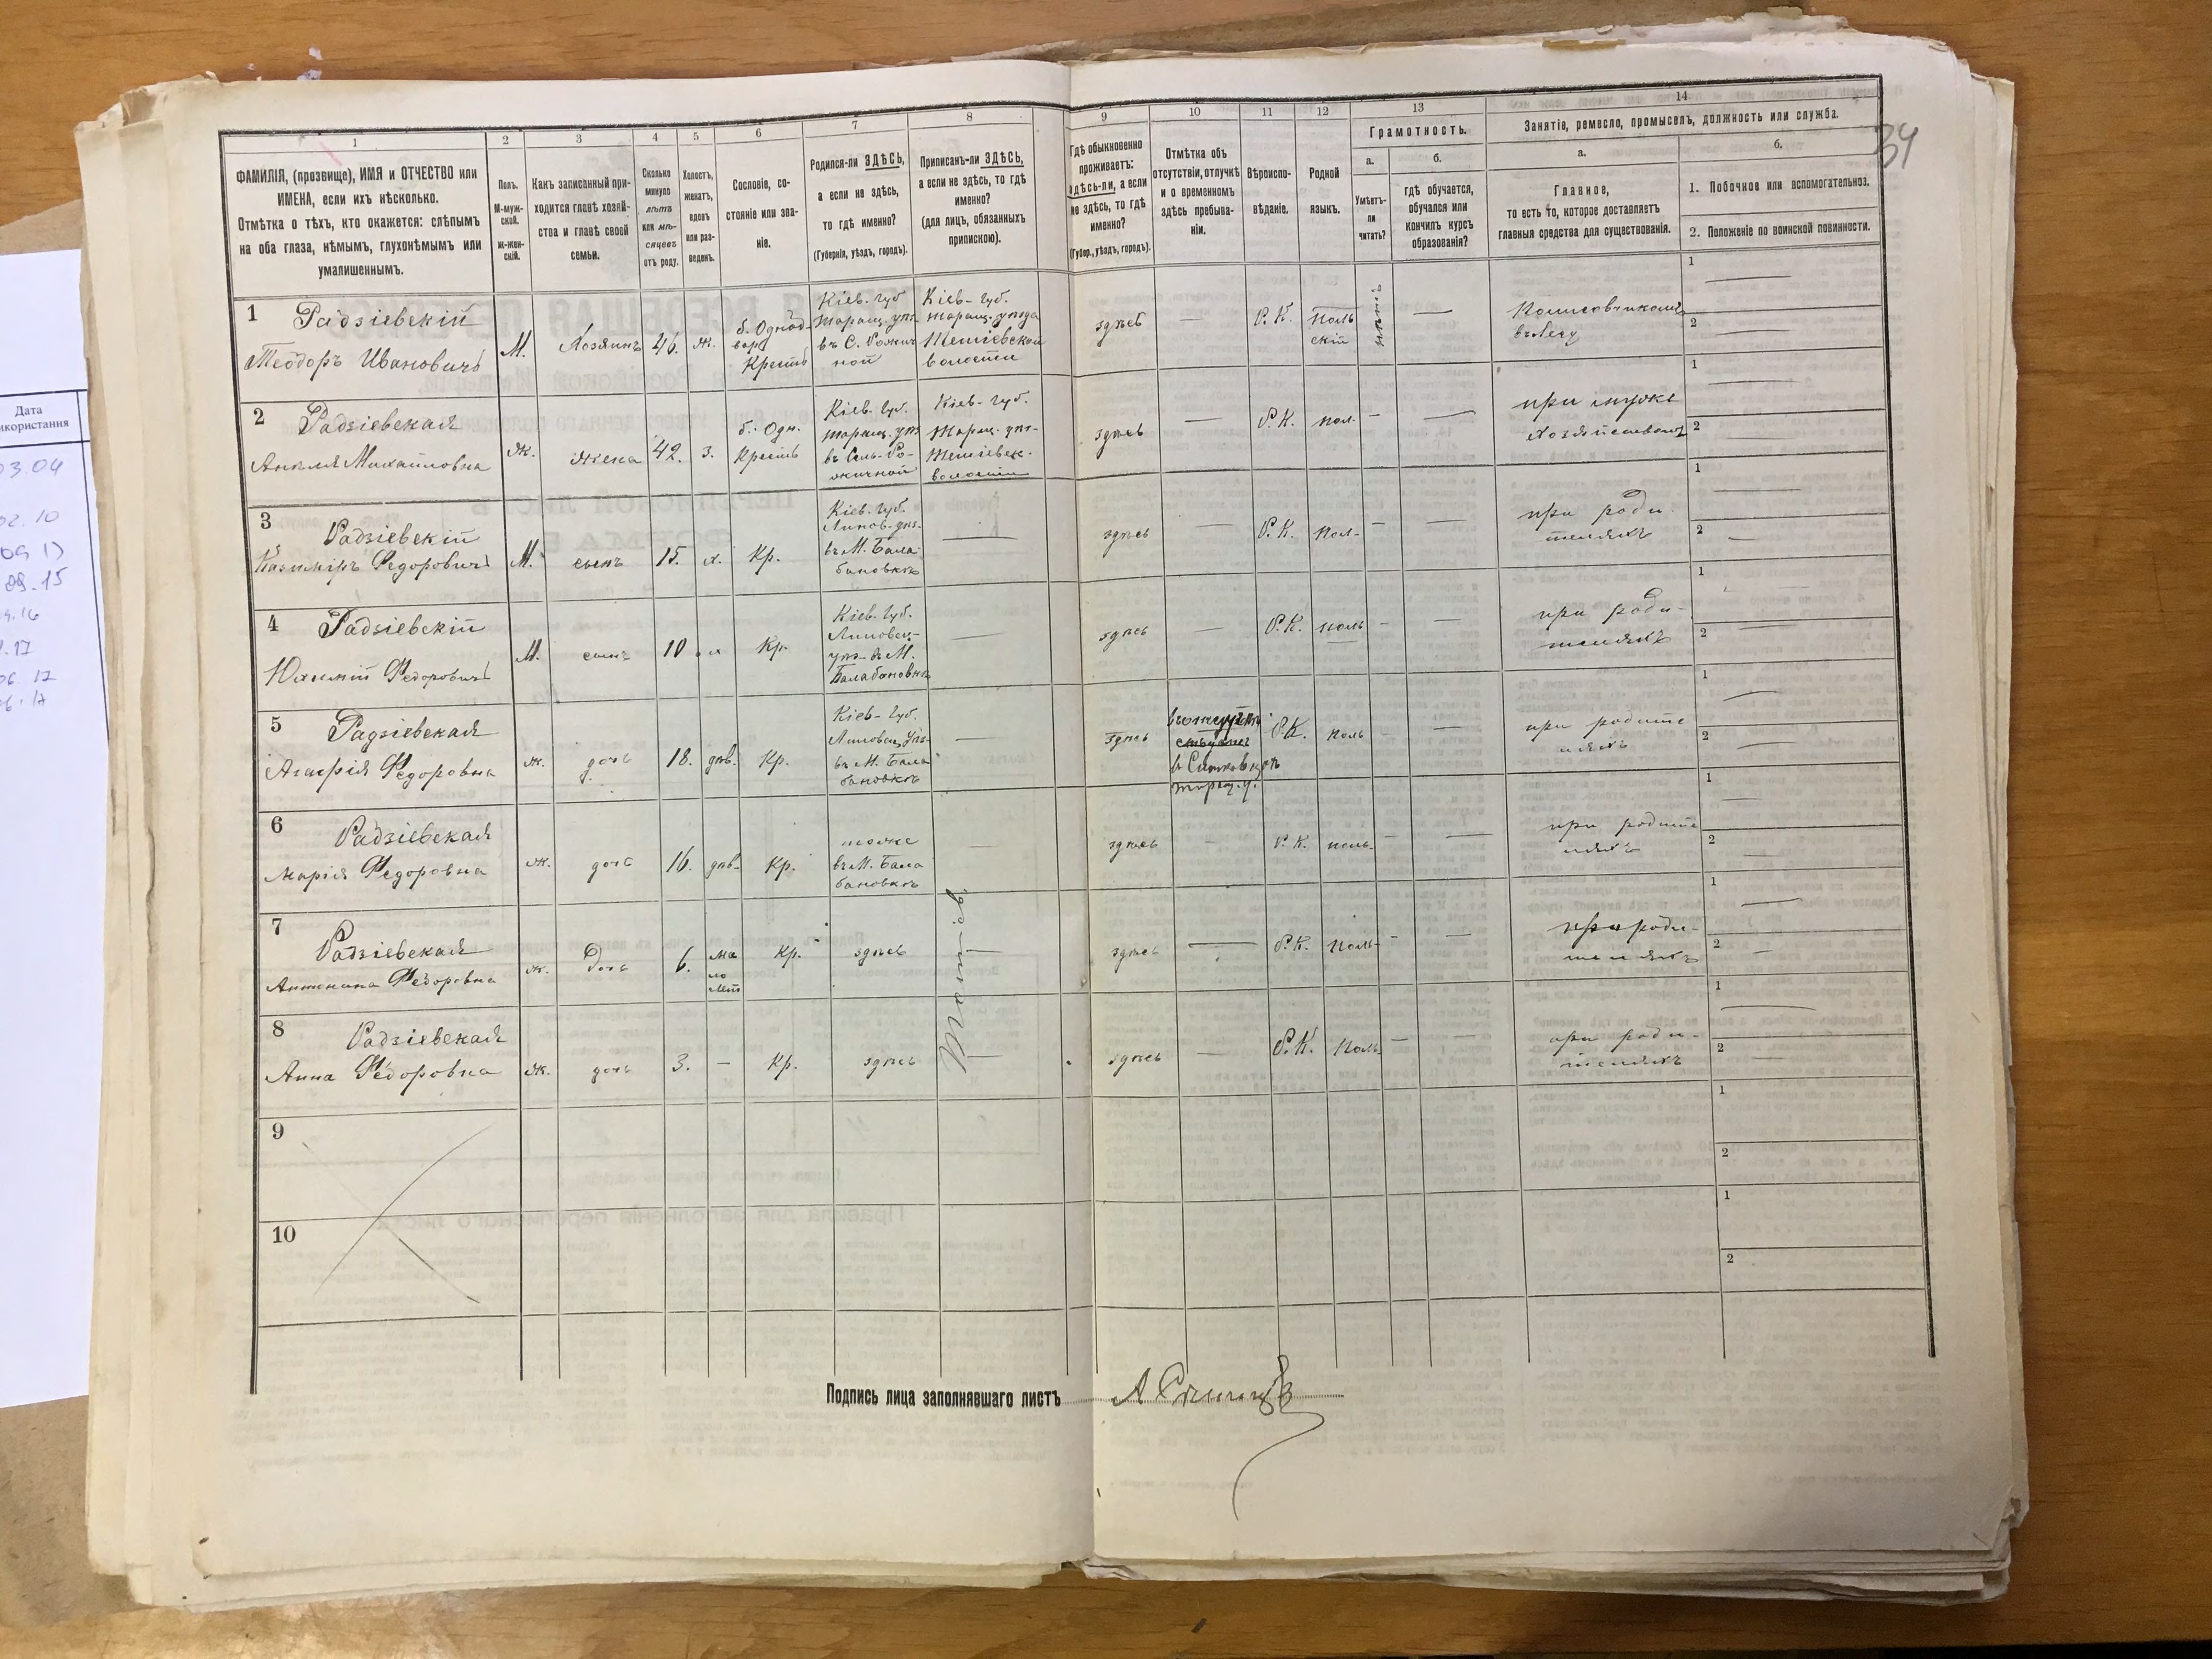 1
2
3
4
5
6
7
8
9
10
11
12
13
14
34
ФАМИЛІЯ, (прозвище), ИМЯ и ОТЧЕСТВО или
ИМЕНА, если ихъ нѣсколько.
Отмѣтка о тѣхъ, кто окажется: слѣпымъ
на оба глаза, нѣмымъ, глухонѣмымъ или
умалишеннымъ.
Полъ.
М-муж-
ской.
Ж-жен-
скій.
Какъ записанный при-
ходится главѣ хозяй-
ства и главѣ своей
семьи.
Сколько
минуло
лѣтъ
или мѣ-
сяцевъ
отъ роду.
Холостъ,
женатъ,
вдовъ
или раз-
веденъ.
Сословіе, со-
стояніе или зва-
ніе.
Родился-ли ЗДѢСЬ,
а если не здѣсь,
то гдѣ именно?
(Губернія, уѣздъ, городъ).
Приписанъ-ли ЗДѢСЬ,
а если не здѣсь, то гдѣ
именно?
(для лицъ, обязанныхъ
припискою).
Гдѣ обыкновенно
проживаетъ:
здѣсь-ли, а если
не здѣсь, то гдѣ
именно?
(Губер., уѣздъ, городъ).
Отмѣтка объ
отсутствіи, отлучкѣ
и о временномъ
здѣсь пребыва-
ніи.
Вѣроиспо-
вѣданіе.
Родной
языкъ.
Грамотность.
а.
Умѣетъ-
ли
читать?
б.
гдѣ обучается,
обучался или
кончилъ курсъ
образованія?
Занятіе, ремесло, промыселъ, должность или служба.
а.
Главное,
то есть то, которое доставляетъ
главныя средства для существованія.
б.
1. Побочное или вспомогательноз.
2. Положеніе по воинской повинности.
1 Радзіевскій
Теодоръ Ивановичъ
М. Хозяинъ 46. ж.
б. Однод-
вор
Крестъ
Кіев. губ
таращ. уѣз
въ С.
ной
Кіев- губ.
таращ. уѣзда
волости
здѣсь — Р. К.
поль
скій
нѣтъ —
въ лесу
1 —
2 —
2 Радзіевская
Михайловна
ж. жена 42. з.
б. Одн.
Крестъ
Кіев. губ.
таращ. уѣз
Кіев- губ.
таращ. уѣз-
волости
здѣсь — Р. К. пол. — —
при мужѣ
1 —
2 —
3 Радзіевскій
Казиміръ Федоровичъ
М. сынъ 15. х. Кр.
Кіев. губ.
Липов. уѣз.
въ М. Бала
бановкѣ
—
здѣсь — Р. К. Пол- — —
при роди
теляхъ
1 —
2 —
4 Радзіевскій
Федоровичъ
М. сынъ 10 х Кр.
Кіев. губ.
Липовец-
уѣз- въ М.
Балабановкѣ
—
здѣсь — Р. К. поль — —
при роди-
теляхъ
1
2 —
5 Радзіевская
Федоровна
ж. дочь 18. дѣв. Кр.
Кіев- губ.
Липовец уѣз-
въ М. Бала
бановкѣ
—
здѣсь
Р. К. поль — —
при родите
ляхъ
1 —
2 —
6 Радзіевская
Марія Федоровна
ж. дочь 16. дѣв- Кр.
тоже
въ М. Бала
бановкѣ
—
здѣсь Р. К. поль. — —
при родите
ляхъ
1 —
2 —
7 Радзіевская
Антонина Федоровна
ж. Дочь 6.
Ма
ло
лѣт
Кр. здѣсь —
здѣсь — Р. К. поль- — —
при роди-
теляхъ
1 —
2 —
8 Радзіевская
Анна Федоровна
ж. дочь 3. — Кр. здѣсь —
здѣсь — Р. К. Поль — —
при роди-
теляхъ
1 —
2 —
9
1
2
10
1
2
Подпись лица заполнявшаго листъ
Дата
икористання
03.04
02.10